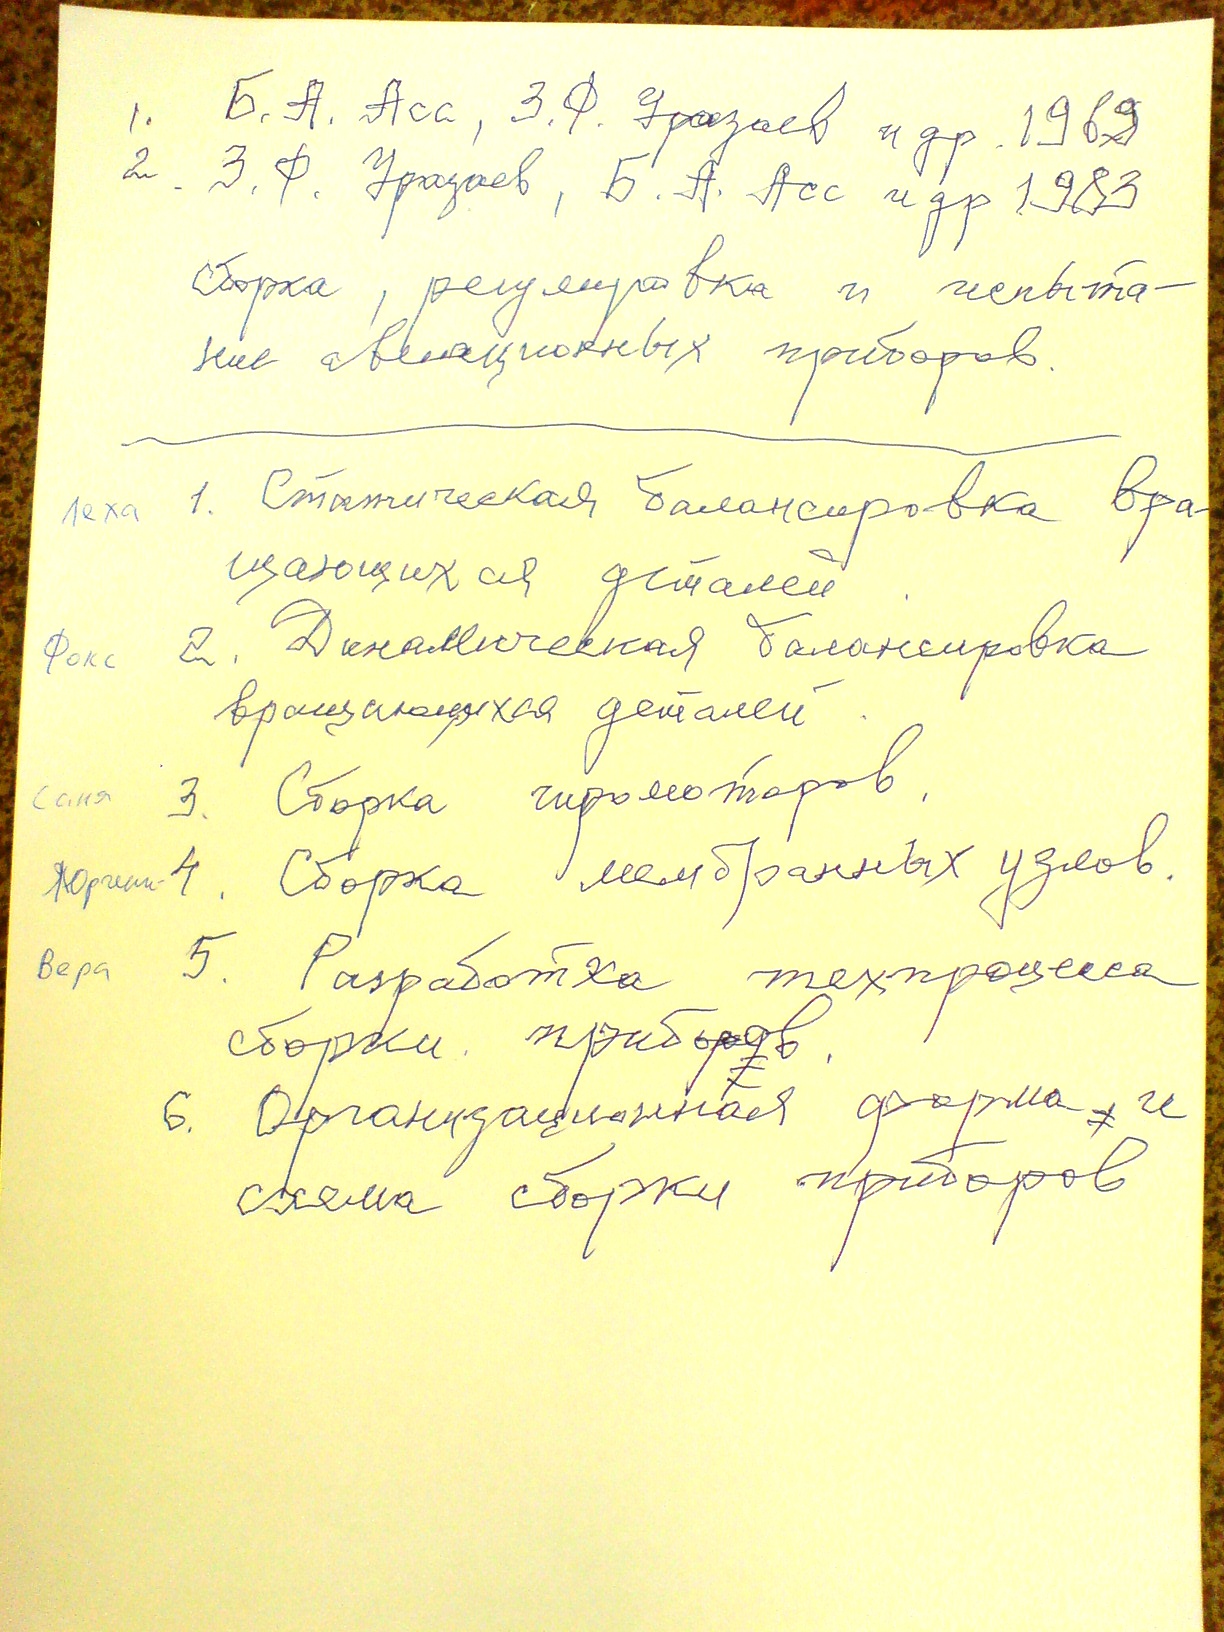 1. Б. А. Асс, З.Ф. Уразаев и др. 1969
2. З.Ф. Уразаев, Б. А. Асс и др 1983
сборка, регулировка и испыта-
ние авиационных приборов.
Леха 1. Статическая балансировка вра-
щающихся деталей.
Фокс 2. Динамическая балансировка
вращающихся деталей.
Саня 3. Сборка гиромоторов.
4. Сборка мембранных узлов.
Вера 5. Разработка техпроцесса
сборки приборов.
6. Организационная форма и
схема сборки приборов